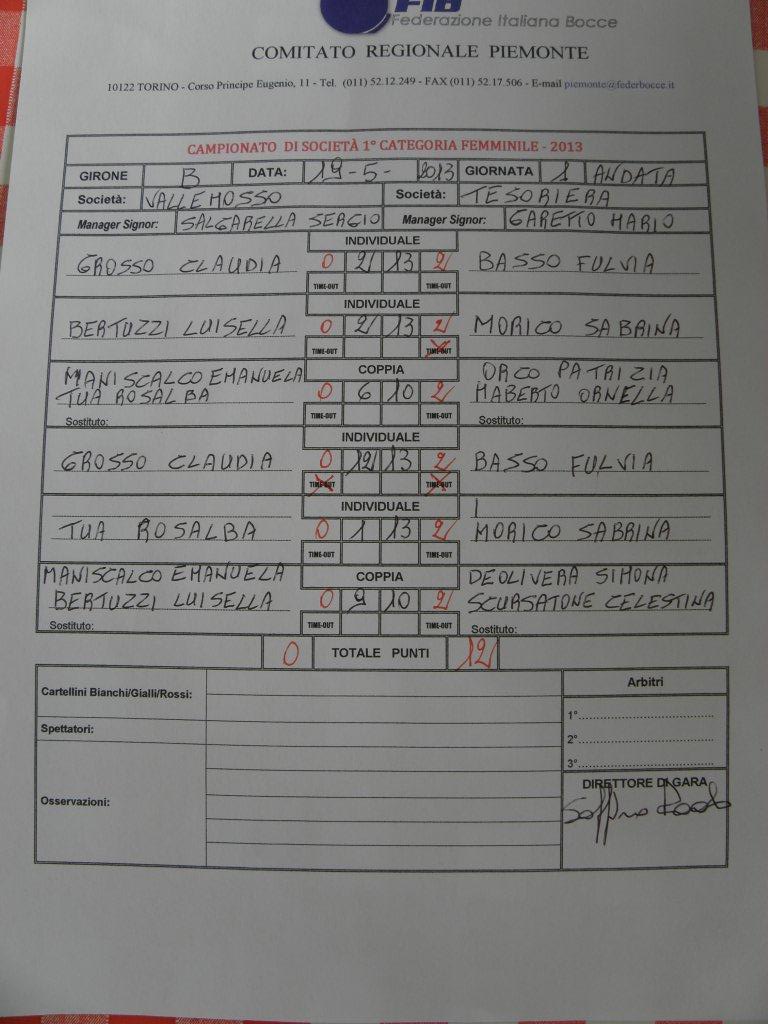 FIB
Federazione Italiana Bocce
COMITATO REGIONALE PIEMONTE
10122 TORINO - Corso Principe Eugenio, 11 - Tel. (011) 52.12.249 - FAX (011) 52.17.506 - E-mail piemonte@federbocce.it
CAMPIONATO DI SOCIETÀ 1° CATEGORIA FEMMINILE - 2013
GIRONE B DATA: 19-5-2013 GIORNATA 1 ANDATA
Società: VALLEMOSSO Società: TESORIERA
Manager Signor: SALGARELLA SERGIO Manager Signor: GARETTO MARIO
INDIVIDUALE
GROSSO CLAUDIA 0 2 13 2 BASSO FULVIA
TIME-OUT TIME-OUT
INDIVIDUALE
BERTUZZI LUISELLA 0 2 13 2 MORICO SABRINA
TIME-OUT TIME-OUT
MANISCALCO EMANUELA COPPIA ORCO PATRIZIA
TUA ROSALBA 0 6 10 2 MABERTO ORNELLA
Sostituto: TIME-OUT TIME-OUT Sostituto:
INDIVIDUALE
GROSSO CLAUDIA 0 12 13 2 BASSO FULVIA
TIME-OUT TIME-OUT
INDIVIDUALE
TUA ROSALBA 0 1 13 2 MORICO SABRINA
TIME-OUT TIME-OUT
MANISCALCO EMANUELA COPPIA DEOLIVERA SIMONA
BERTUZZI LUISELLA 0 9 10 2 SCURSATONE CELESTINA
Sostituto: TIME-OUT TIME-OUT Sostituto:
0 TOTALE PUNTI 12
Cartellini Bianchi/Gialli/Rossi:
Spettatori:
Osservazioni:
Arbitri
1°
2°
3°
DIRETTORE DI GARA